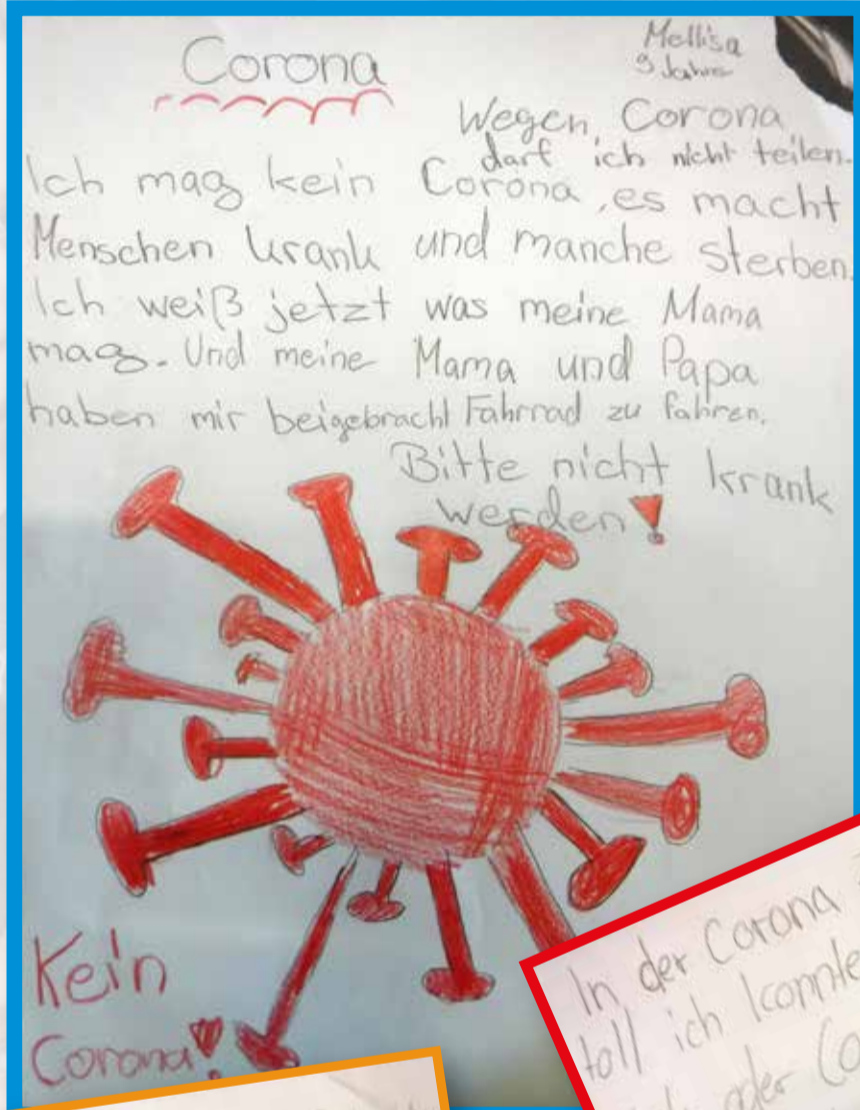 Corona
Mellisa
9 Jahre
Wegen Corona
darf ich nicht teilen.
Ich mag kein Corona, es macht
Menschen krank und manche sterben.
Ich weiß jetzt was meine Mama
mag. Und meine Mama und Papa
haben mir beigebracht Fahrrad zu fahren.
Bitte nicht krank
werden!
Kein
Corona!
In der Corona
toll ich konnte
oder